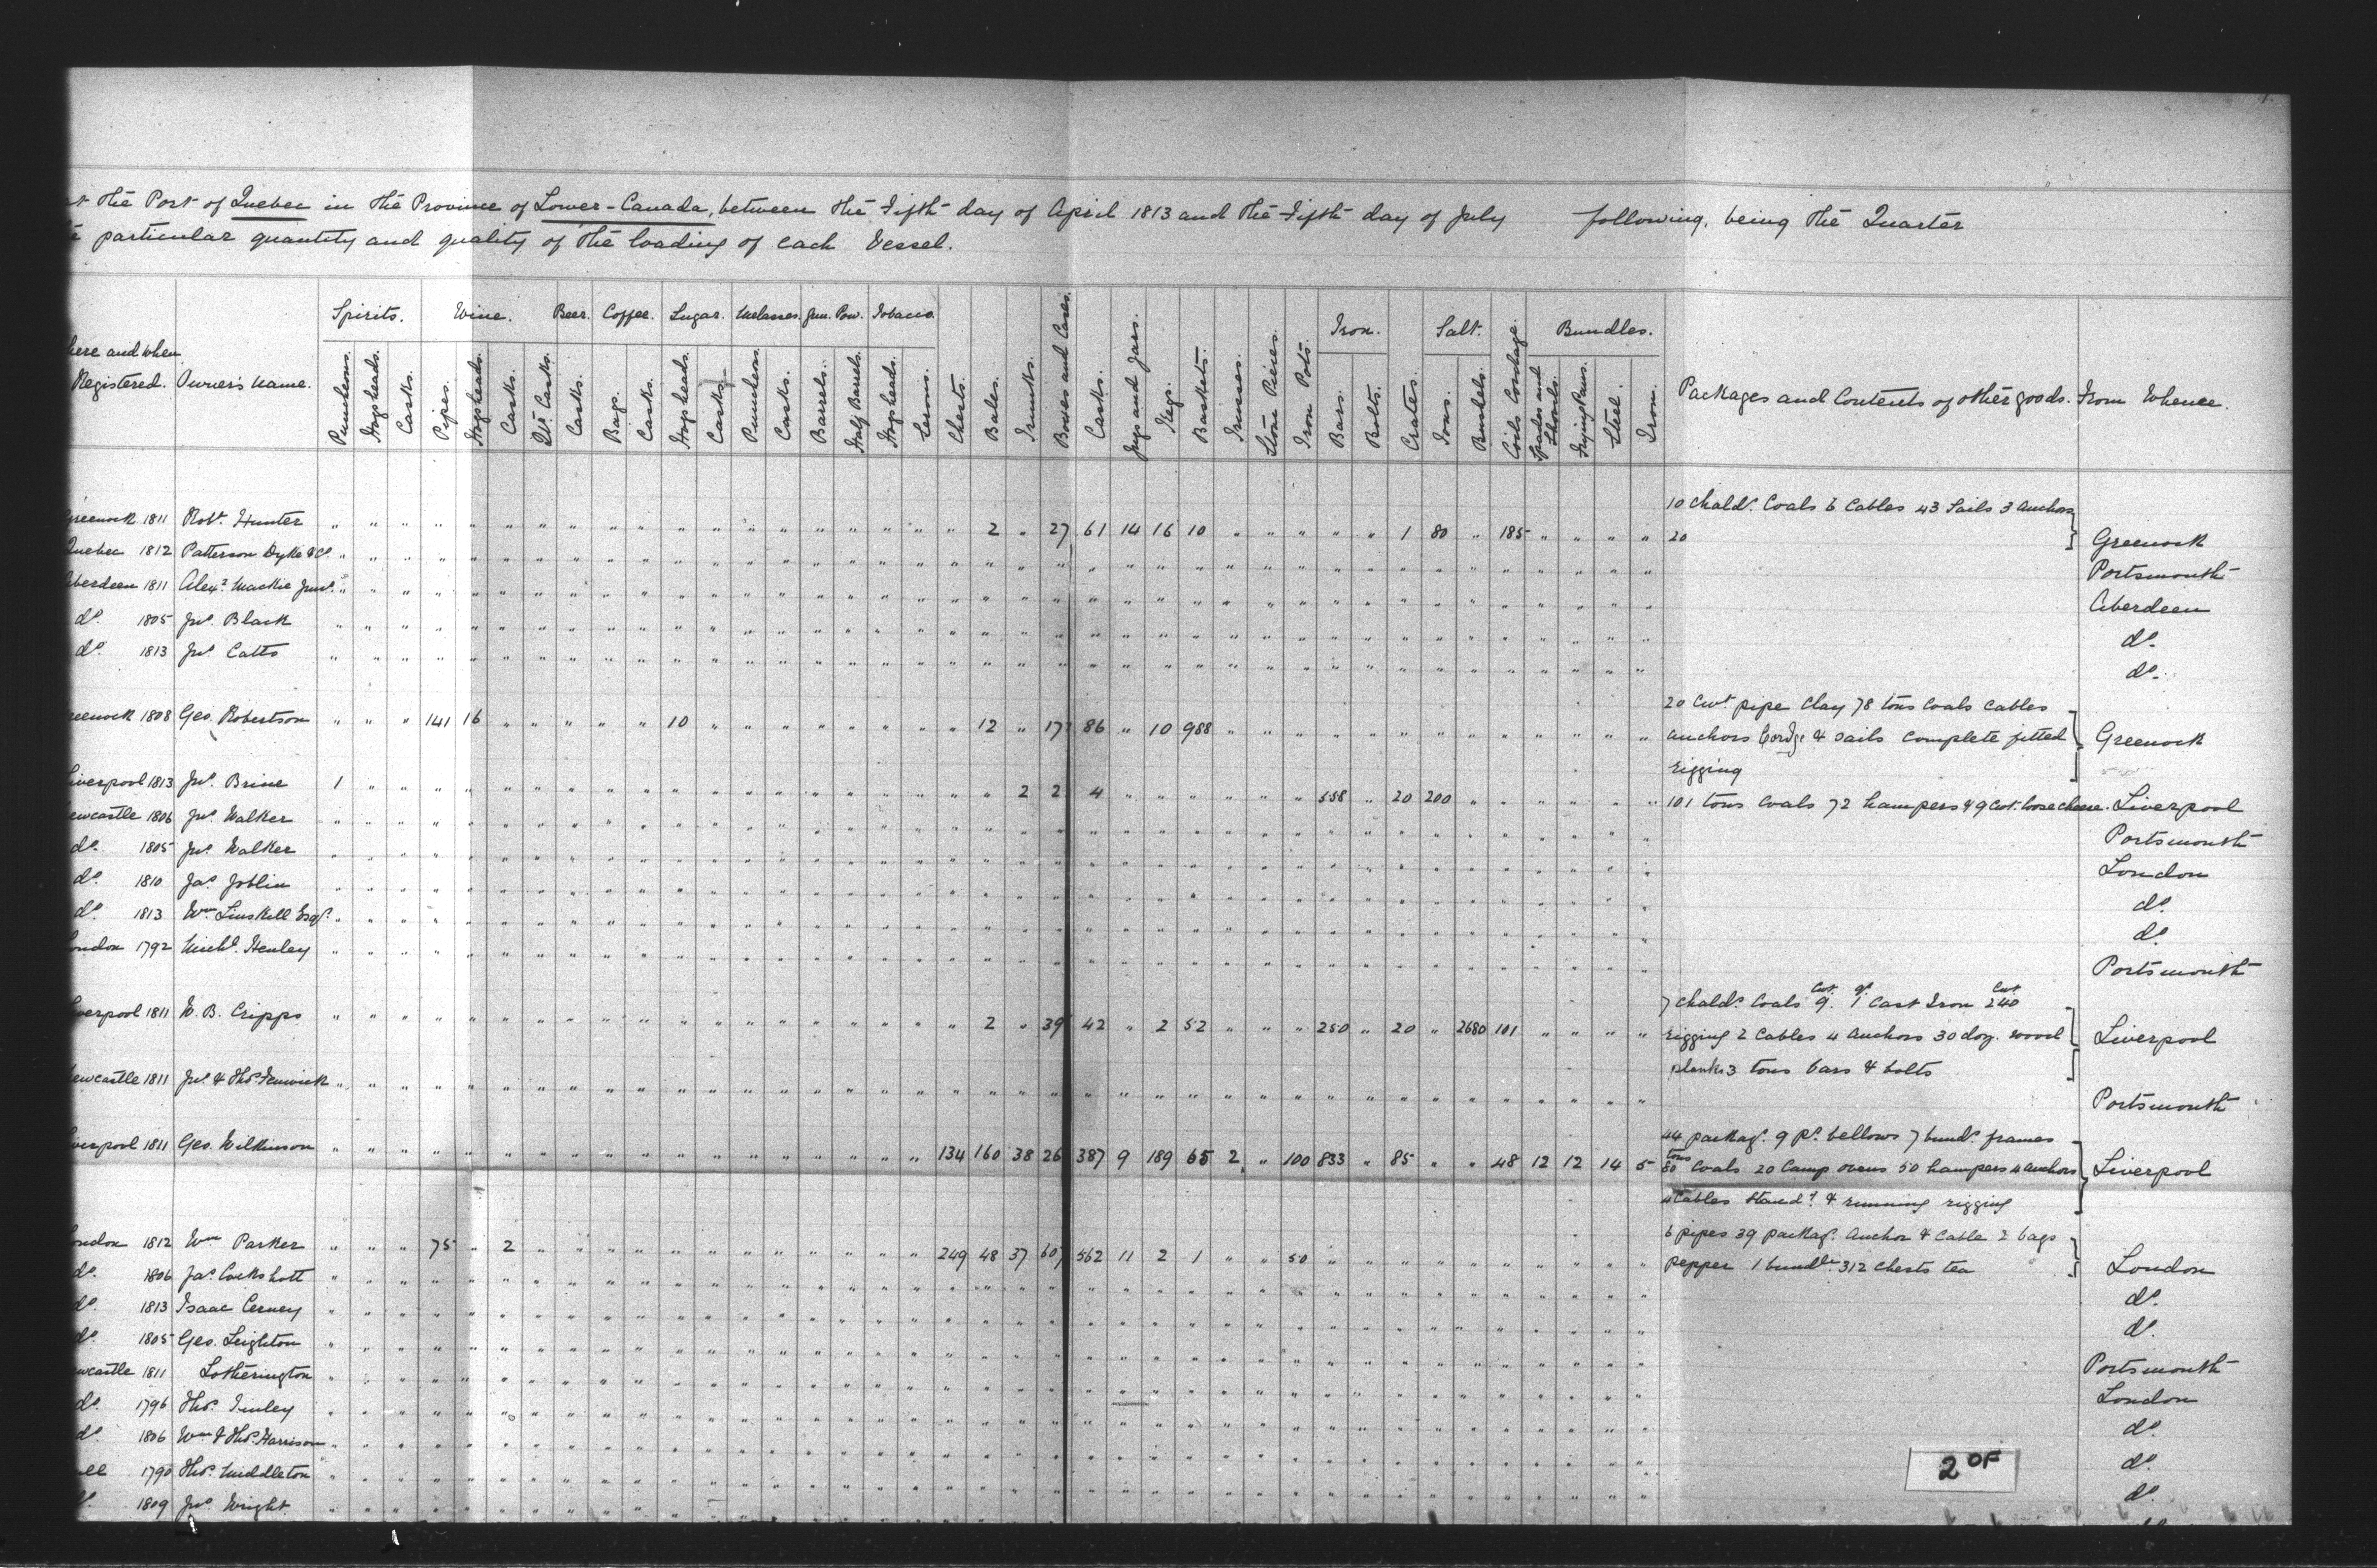 at the Port of Quebec in the Province of Lower-Canada, between the Fifth day of April 1813 and the Fifth day of July following, being the Quarter
particular quantity and quality of the loading of each Vessel.
Spirits. Wine. Beer. Coffee. Sugar. Melasses. Gun. Pow. Tobacco. Iron. Salt. Bundles.
here and when Registered. Owner's name. Puncheons. Hogsheads. Casks. Pipes. Hogsheads. Casks. Qr. Casks. Casks. Bags. Casks. Hogsheads. Casks. Puncheons. Casks. Barrels. Half Barrels. Hogsheads. Serons. Chests. Bales. Trunks. Boxes and Cases. Casks. Jugs and Jars. Kegs. Baskets. Trusses. Stone Pieces. Iron Pots. Bars. Bolts. Crates. Tons. Bushels. Coils Cordage. Spades and Shovels. Frying Pans. Steel. Iron. Packages and Contents of other goods. From Whence.
10 Chald. Coals 6 Cables 43 Sails 3 anchors
Greenock 1811 Robt. Hunter 2 27 61 14 16 10 1 80 185 20 Greenock
Quebec 1812 Patterson Dyke & Co. Portsmouth
Aberdeen 1811 Alexr. Mackie Junr. Aberdeen
do. 1805 Jno. Black do.
do. 1813 Jno. Catto do.
20 Cwt. pipe Clay 78 tons Coals Cables
reenock 1808 Geo. Robertson 141 16 10 12 17 86 10 988 anchors Cordge & sails complete fitted Greenock
rigging
Liverpool 1813 Jno. Brine 1 2 2 4 558 20 200 101 tons Coals 72 hampers & 9 Cwt. loose cheese. Liverpool
ewcastle 1806 Jno. Walker Portsmouth
do. 1805 Jno. Walker London
do. 1810 Jas. Joblin do.
do. 1813 Wm. Linskill Esqr. do.
London 1792 Michl. Henley Portsmouth
7 Chald. Coals 9 Cwt. 1 qr. Cast Iron 240 Cwt.
verpool 1811 W. B. Cripps 2 39 42 2 52 250 20 2680 101 rigging 2 Cables 4 anchors 30 doz. wood Liverpool
planks 3 tons bars & bolts
ewcastle 1811 Jno. & Thos. Fenwick Portsmouth
44 packag. 9 pr. bellows 7 bund. frames
verpool 1811 Geo. Wilkinson 134 160 38 26 387 9 189 65 2 100 833 85 48 12 12 14 5 80 tons Coals 20 Camp ovens 50 hampers 4 anchors Liverpool
4 Cables Stand. & running rigging
6 pipes 39 packag. Anchor & Cable 2 bags
ondon 1812 Wm Parker 75 2 249 48 37 607 562 11 2 1 50 pepper 1 bundle 312 Chests tea London
do. 1806 Jas. Cockshott do.
do. 1813 Isaac Cerney do.
do. 1805 Geo. Leighton Portsmouth
wcastle 1811 Lotherington London
do. 1796 Thos. Finley do.
do. 1806 Wm & Thos. Harrison do.
1790 Thos. Middleton do.
1809 Jno. Wright
2 OF